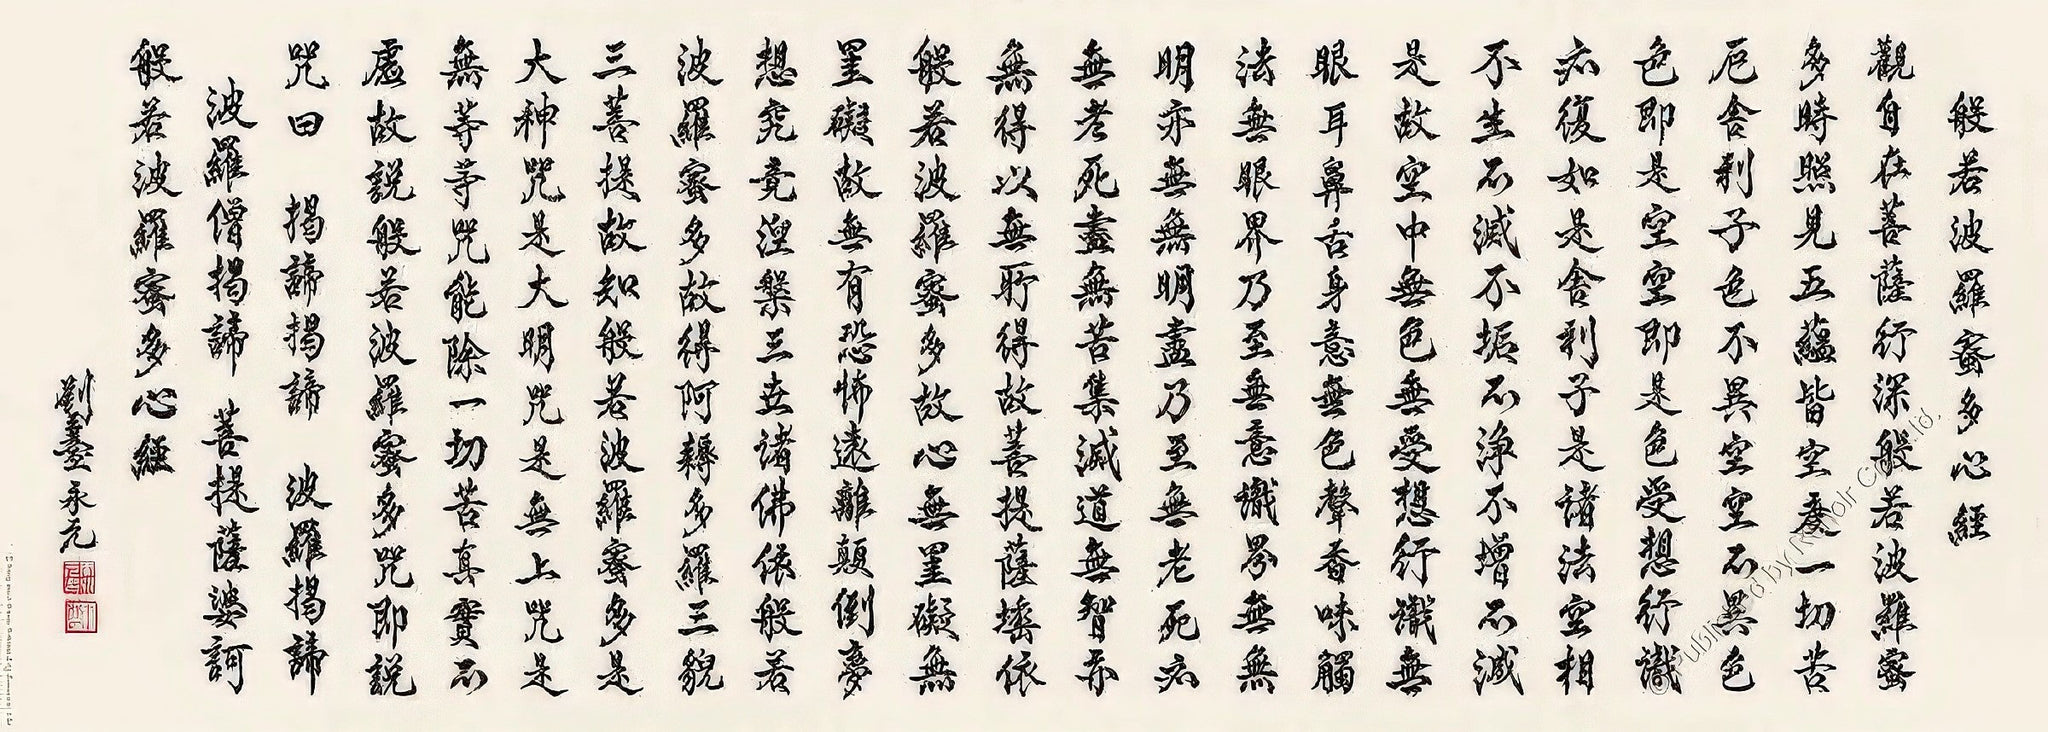 般若波羅蜜多心経
觀自在菩薩行深般若波羅蜜
多時照見五蘊皆空度一切苦
厄舍利子色不異空空不異色
色即是空空即是色受想行識
亦復如是舍利子是諸法空相
不生不滅不垢不淨不增不減
是故空中無色無受想行識無
眼耳鼻舌身意無色聲香味觸
法無眼界乃至無意識界無無
明亦無無明盡乃至無老死亦
無老死盡無苦集滅道無智亦
無得以無所得故菩提薩埵依
般若波羅蜜多故心無罣礙無
罣礙故無有恐怖遠離顛倒夢
想究竟涅槃三世諸佛依般若
波羅蜜多故得阿耨多羅三貌
三菩提故知般若波羅蜜多是
大神咒是大明咒是無上咒是
無等等咒能除一切苦真實不
虛故說般若波羅蜜多咒即說
咒曰 揭諦揭諦 波羅揭諦
波羅僧揭諦 菩提薩婆訶
般若波羅蜜多心經
劉臺永元